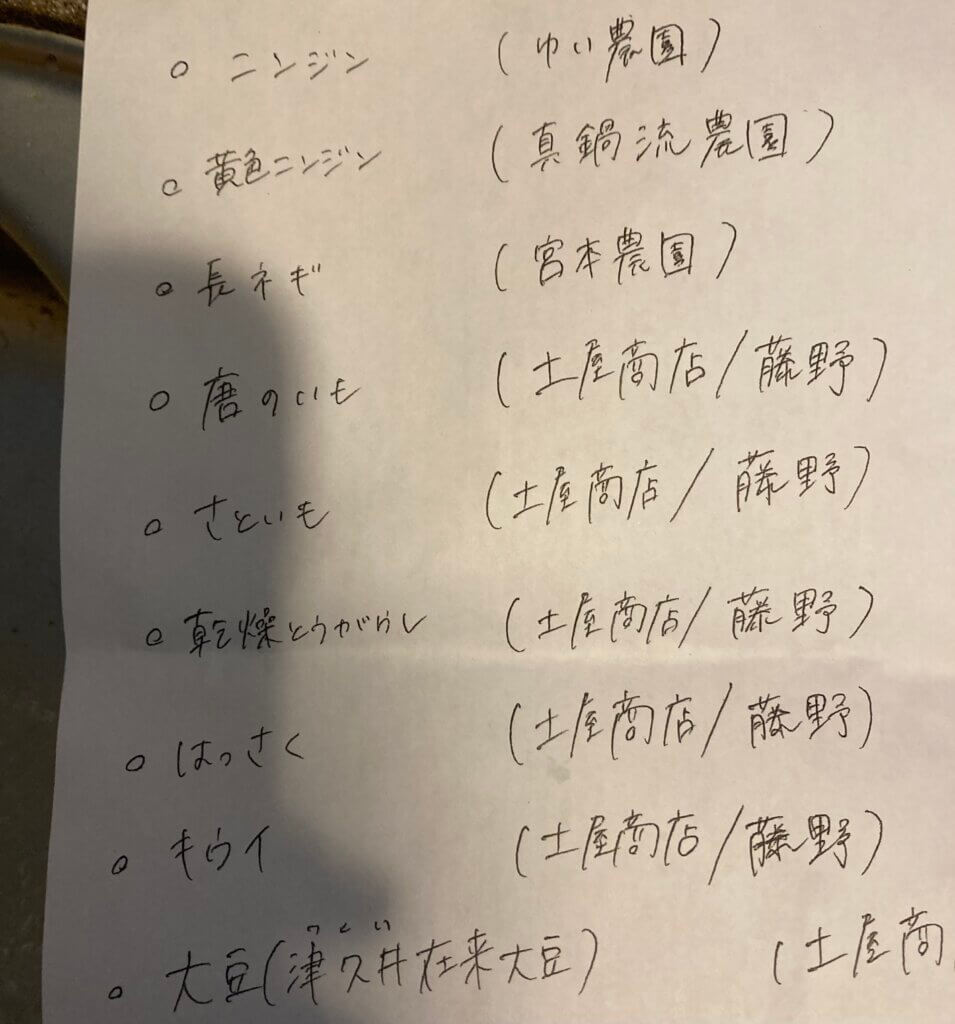 ○ ニンジン (ゆい農園)
○ 黄色ニンジン (真鍋流農園)
○ 長ネギ (宮本農園)
○ 唐のいも (土屋商店/藤野)
○ さといも (土屋商店/藤野)
○ 乾燥とうがらし (土屋商店/藤野)
○ はっさく (土屋商店/藤野)
○ キウイ (土屋商店/藤野)
つくい
○ 大豆(津久井在来大豆) (土屋商